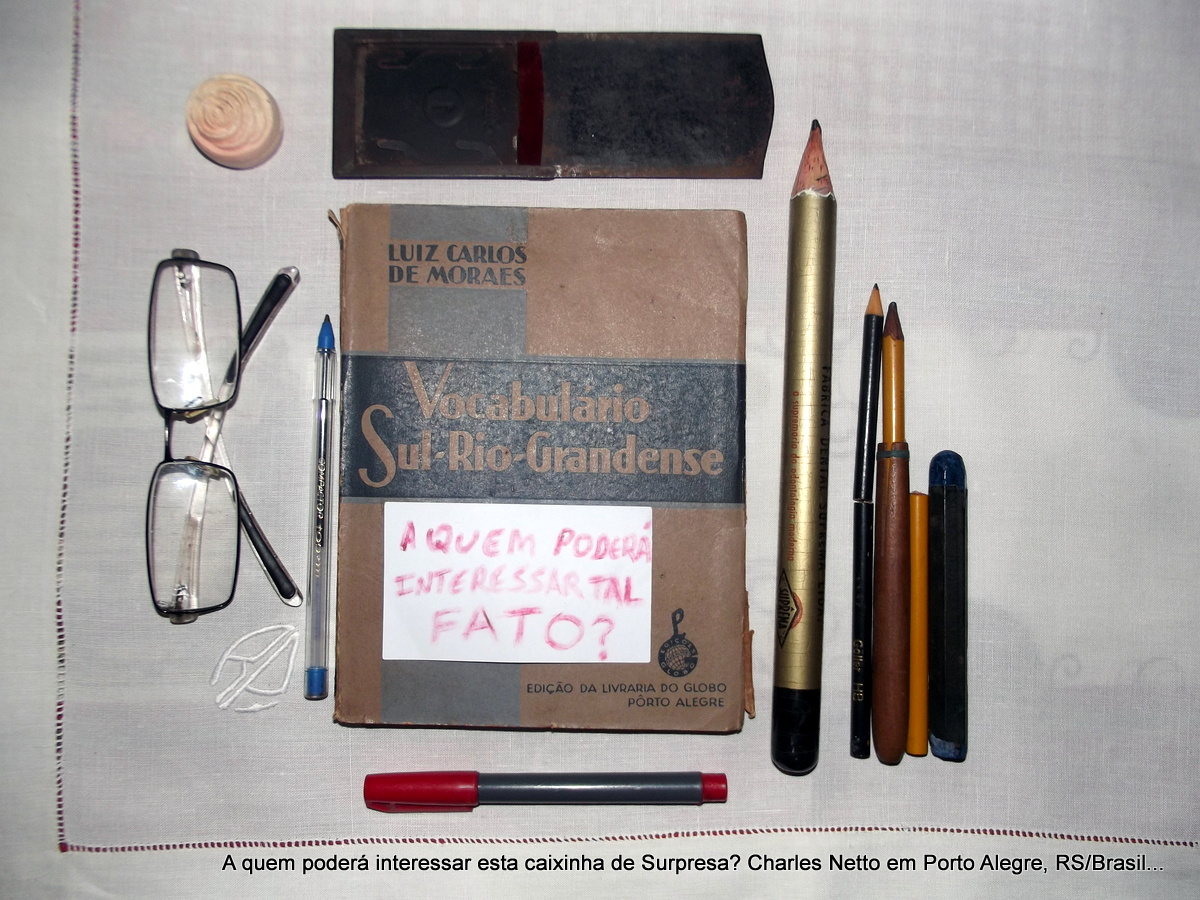 LUIZ CARLOS
DE MORAES
Vocabulário
Sul-Rio-Grandense
A QUEM PODERÁ
INTERESSAR TAL
FATO?
EDIÇÃO DA LIVRARIA DO GLOBO
PÔRTO ALEGRE
GLOBO
FABRICA DENTAL SUPREMA
SUPREMA
HB
A quem poderá interessar esta caixinha de Surpresa? Charles Netto em Porto Alegre, RS/Brasil...